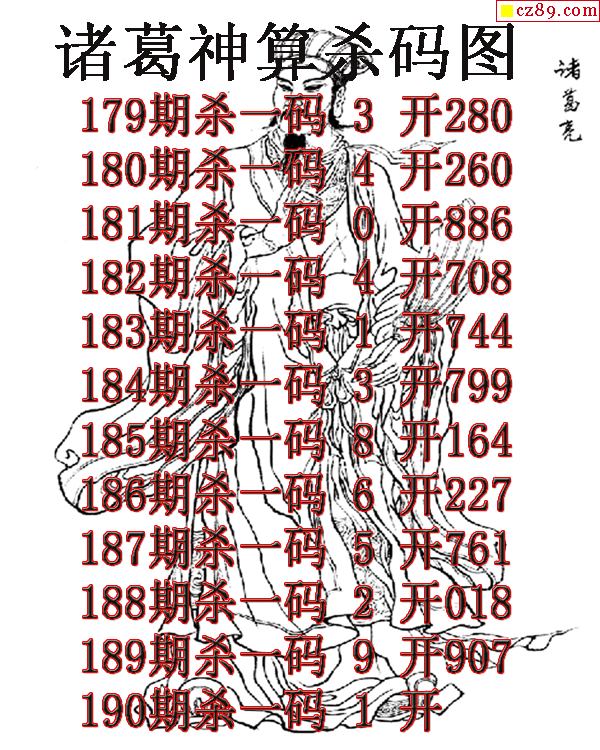 cz89.com
诸葛神算杀码图
诸葛亮
179期杀一码 3 开280
180期杀一码 4 开260
181期杀一码 0 开886
182期杀一码 4 开708
183期杀一码 1 开744
184期杀一码 3 开799
185期杀一码 8 开164
186期杀一码 6 开227
187期杀一码 5 开761
188期杀一码 2 开018
189期杀一码 9 开907
190期杀一码 1 开